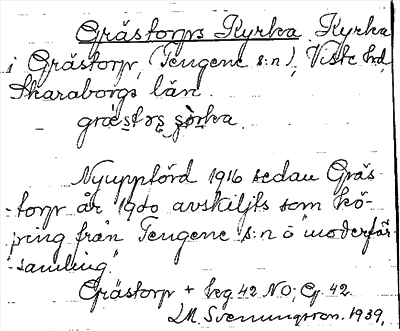 Grästorps Kyrka, Kyrka
i Grästorp, (Tengene s:n), Viste hd,
Skaraborgs län.
græstɔrs çörka.
Nyuppförd 1916 sedan Gräs-
torp år 1900 avskiljts som kö-
ping från Tengene s:n o "moderför-
samling"
Grästorp + beg. 42 NO; Cg. 42.
M Svenningsson. 1939,